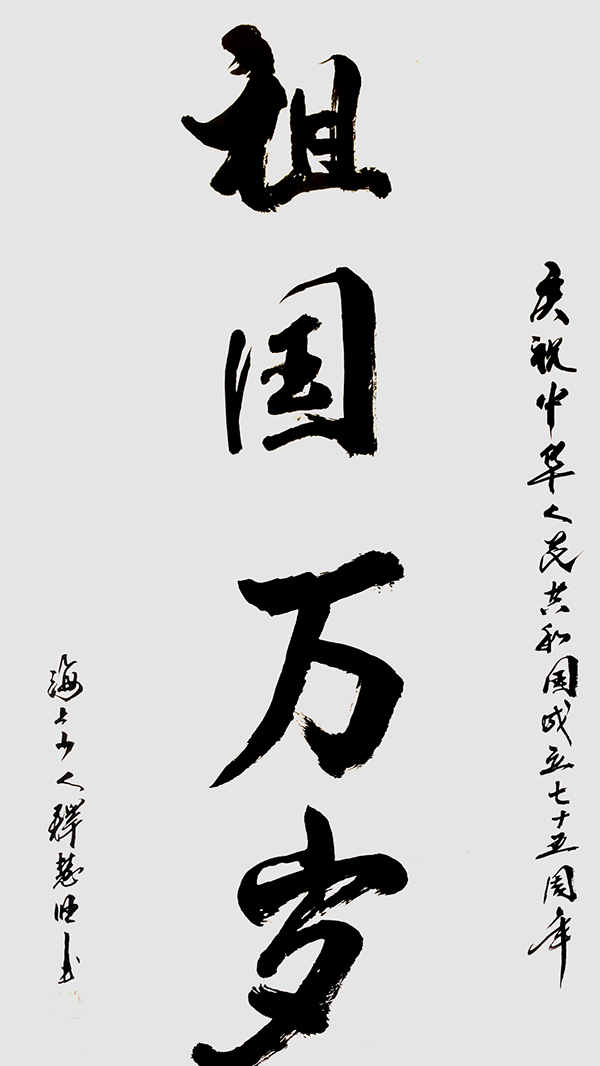 庆祝中华人民共和国成立七十五周年
祖国万岁
海上少人释慧旺书